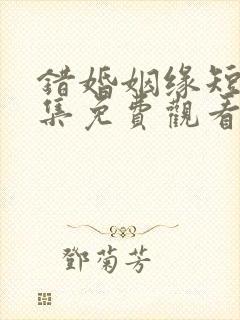 錯婚姻缘短
集免費觀看
鄧菊芳